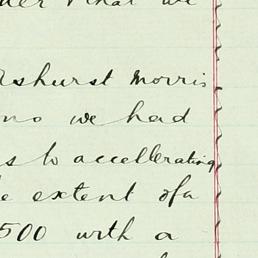 that we
Ashurst Morris
no we had
s to accellerating
e extent of a
500 with a